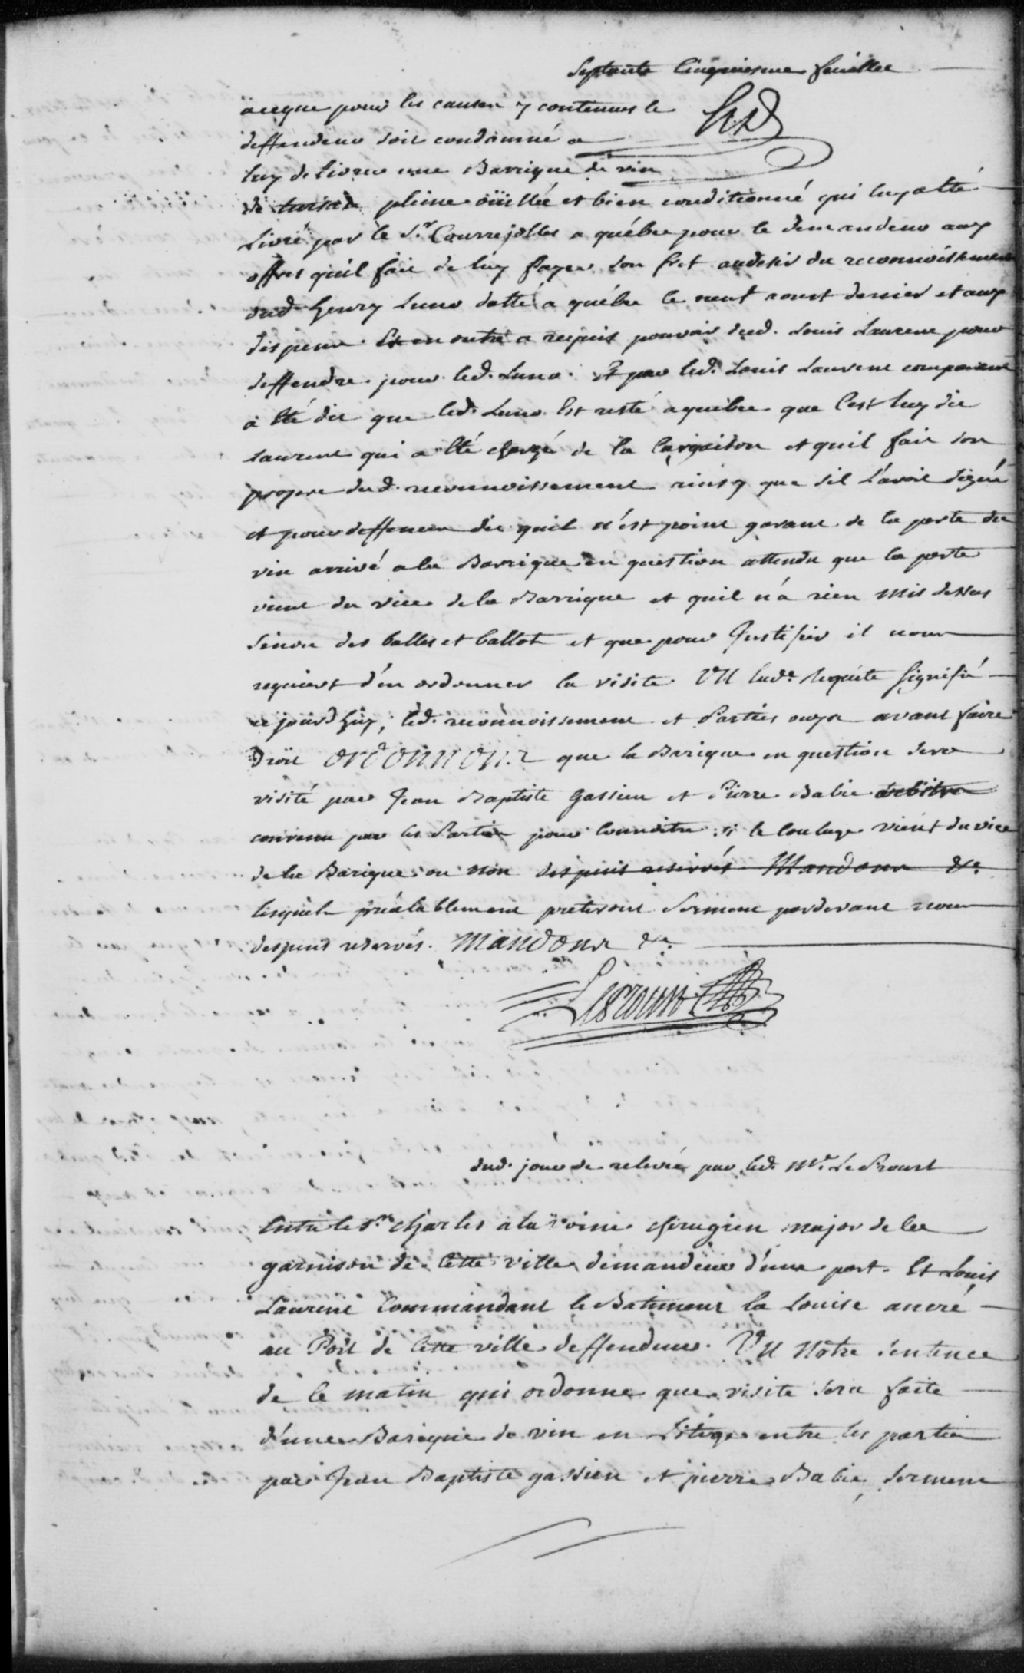 Septante Cinquiesme feuillet
a ceque pour les causes y contenues le
deffendeur soit condamné a
luy de livrer une Barrique de vin
de pleine oüillée et bien conditionné qui luy a été
Livré par le Sr. Courrejolles a québec pour le demandeur aux
offres quil fait de luy payer son fret au desir du reconnoissement
dud. henry Luno datté a québec le neuf aoust dernier et aux
despens. Et en outre a requis pouvoir dud. Louis Laurent pour
deffendre pour led. Luno. Et par led. Louis Laurent comparant
a été dit que led. Luno Est resté a québec que Cest luy dit
Laurent qui a été chargé de la Cargaison et quil fait son
propre dud. reconnoissement ainsy que sil L'avoit signé
et pour deffences dit quil n'est point garant de la perte du
vin arrivé a la Barrique en question attendu que la perte
vient du vice de la Barrique et quil n'a rien mis dessus
sinon des balles et ballot et que pour Justifier il nous
requiert d'en ordonner la visite. VU lad. Requête signifié
ce jourd'huy, led. reconnoissement et Parties ouyes avant faire
Droit ordonnons que la Barique en question sera
visité par Jean Baptiste Gassien et Pierre Babie arbitres
convenu par les Parties pour connoitre si le coulage vient du vice
de la Barique ou non despens reservés Mandons &c.
lesquels préalablement preteront serment pardevant nous
despens reservés. Mandons &c.
dud. jour de relevée par led. Mr. Le Proust
Entre le Sr. Charles alavoine chirugien major de la
garnison de Cette ville demandeur d'une part. Et Louis
Laurent Commandant le Batiment la Louise ancré
au Port de Cette ville deffendeur. VU Notre sentence
de ce matin qui ordonne que visite sera faite
d'une Barique de vin en Litige entre les parties
par Jean Baptiste gassien et pierre Babie, serment